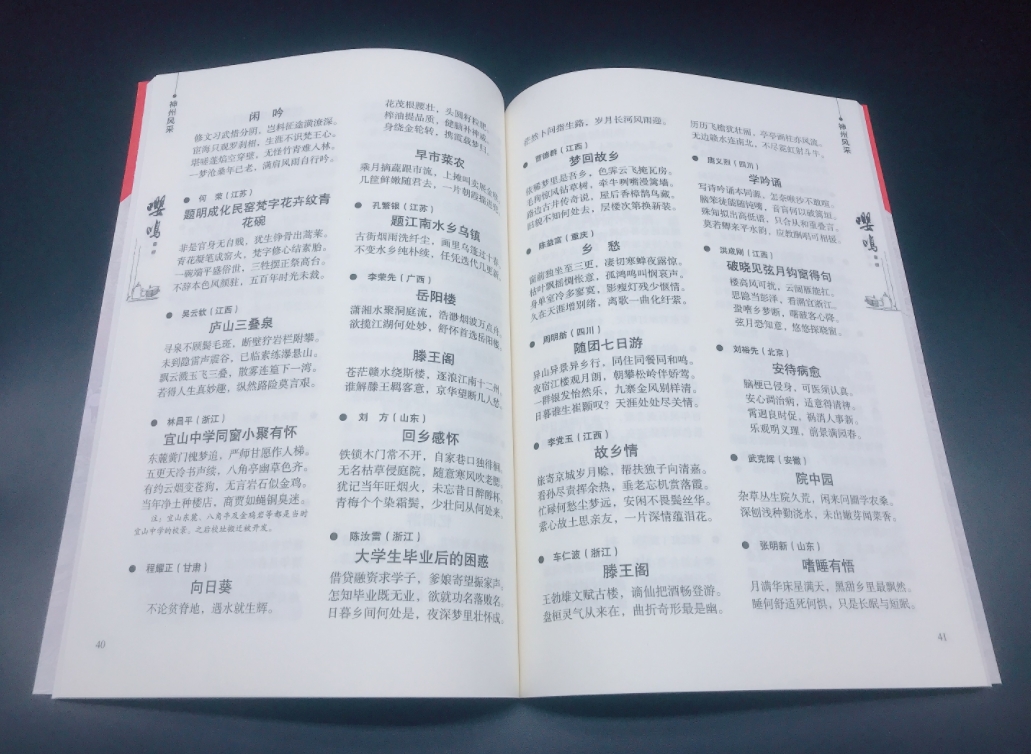 神州风采
闲 吟
修文习武惜分阴，岂料征途满潦深。
宦海只观罗刹相，生涯不识梵王心。
堪嗟蓬蒿空穿壁，无怪竹青难入林。
一梦沧桑年已老，满肩风雨自行吟。
何 荣（江苏）
题明成化民窑梵字花卉纹青
花碗
非是官身无自贱，犹生铮骨出蒿莱。
青花凝笔成窑火，梵字修心结素胎。
一碗端平盛俗世，三牲摆正祭高台。
不辞本色风颜驻，五百年时光未裁。
吴云钦（江西）
庐山三叠泉
寻泉不顾鬓毛斑，断壁狞岩栏附攀。
未到隐雷声震谷，已临素练瀑悬山。
飘云溅玉飞三叠，散雾连篇下一湾。
若得人生真妙趣，纵然路险莫言艰。
林昌平（浙江）
宜山中学同窗小聚有怀
东麓黉门槐梦追，严师甘愿作人梯。
五更天冷书声续，八角亭幽草色齐。
有约云烟变苍狗，无言岩石似金鸡。
当年净土种楼店，商贾如蝇铜臭迷。
注：宜山东麓、八角亭及金鸡岩等都是当时
宜山中学的校景，之后校址搬迁被开发。
程耀正（甘肃）
向日葵
不论贫脊地，遇水就生鲜。
40
花茂根腰壮，头圆籽粒
榨油提品质，健脑补神
身绕金轮转，携霞袅梦
早市菜农
乘月摘蔬跟市流，上摊叫卖
几筐鲜嫩随君去，一片朝霞
孔繁银（江苏）
题江南水乡乌镇
古街烟雨洗纤尘，画里乌篷过十
不变水乡纯朴续，任凭迭代几更新
李荣先（广西）
岳阳楼
潇湘水聚洞庭流，浩渺烟波万点舟。
欲揽江湖何处妙，舒怀首选岳阳楼。
滕王阁
苍茫赣水绕斯楼，逐浪江南十二州
谁解滕王羁客意，京华望断几人愁
刘 方（山东）
回乡感怀
铁锁木门常不开，自家巷口独徘徊
无名枯草侵庭院，随意寒风吹老腮
犹记当年旺烟火，未忘昔日醉醇杯
青梅个个染霜鬓，少壮问从何处来
陈汝雷（浙江）
大学生毕业后的困惑
借贷融资求学子，爹娘寄望振家声。
怎知毕业既无业，欲就功名落败名。
日暮乡间何处是，夜深梦里壮怀成。
茫然卜问指生路，岁月长河风雨迎。
曹德群（江西）
梦回故乡
依稀梦里是吾乡，色霁云飞掩瓦房。
毛狗惊风钻草树，牵牛唎嘴漫篱墙。
路边古井传奇说，屋后香樟鹊鸟藏。
旧貌不知何处去，层楼次第换新装。
陈益富（重庆）
乡 愁
窗前独坐至三更，凄切寒蝉夜露惊。
枯叶飘摇惆怅意，孤鸿鸣叫悯哀声。
身单室冷多寥寞，影瘦灯残少惬情。
久在天涯增别绪，离歌一曲化纤萦。
周明脑（四川）
随团七日游
异山异景异乡行，同住同餐同和鸣。
夜宿江楼观月朗，朝攀松岭伴娇莺。
一群银发怡然乐，九寨金风别样清。
日暮谁生崔颢叹？天涯处处尽关情。
李党玉（江西）
故乡情
旅寄京城岁月赊，帮扶独子向清嘉。
看孙尽责挥余热，垂老忘机赏落霞。
忙碌何愁尘梦远，安闲不畏鬓丝华。
萦心故土思亲友，一片深情蕴泪花。
车仁波（浙江）
滕王阁
王勃雄文赋古楼，谪仙把酒畅登游。
盘桓灵气从来在，曲折奇形最是幽。
神州风采
历历飞檐犹壮丽，亭亭画柱亦风流。
无边赣水连南北，不尽霓虹射斗牛。
唐义烈（四川）
学吟诵
写诗吟诵本同源，怎奈喉沙不敢喧。
脑笨徒能随钝嘴，音盲何以破篱樊。
殊知拟出高低语，只合从和重叠言。
莫若卿来平水韵，应教胴唱可相援。
洪庭刚（江西）
破晓见弦月钩窗得句
楼高风可扰，云阔雁能扛。
思隐当彭泽，看潮宜浙江。
蛩嘈乡梦断，喘破客心降。
弦月恐知意，悠悠探晓窗。
刘裕先（北京）
安待病愈
脑梗已侵身，可医须认真。
安心调治病，适意得清神。
霄遐良时促，祸消人事新。
乐观明义理，前景满园春。
武克辉（安徽）
院中园
杂草丛生院久荒，闲来问圃学农桑。
深刨浅种勤浇水，未出嫩芽闻菜香。
张明新（山东）
嗜睡有悟
月满华床星满天，黑甜乡里最飘然。
睡何舒适死何惧，只是长眠与短眠。
41